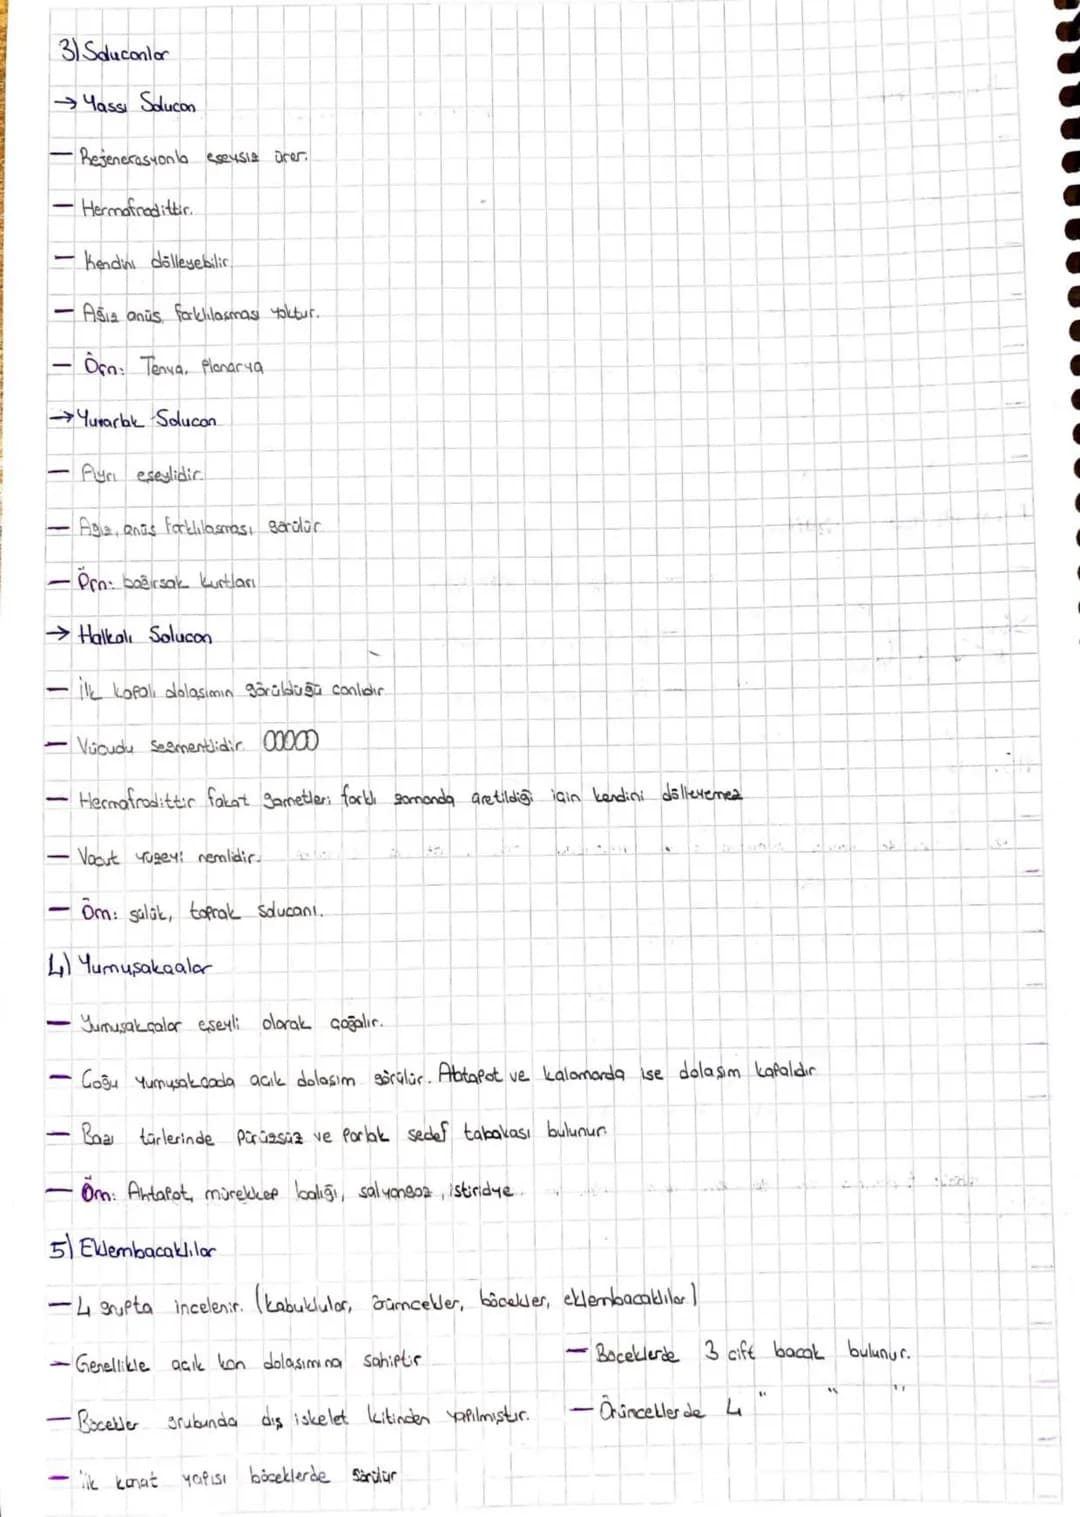 3) Solucanlar
→ Yassı Solucan
— Rejenerasyonla eşeysiz ürer.
— Hermafrodittir.
— Kendini dölleyebilir.
— Ağız anüs farklılaşması yoktur.
— Örn: Tenya, Planarya
→ Yuvarlak Solucan
— Ayrı eşeylidir.
— Ağız, anüs farklılaşması görülür
— Örn: bağırsak kurtları
→ Halkalı Solucan
— İlk kapalı dolaşımın görüldüğü canlıdır
— Vücudu segmentlidir
— Hermafrodittir fakat gametleri farklı zamanda üretildiği için kendini dölleyemez
— Vücut yüzeyi nemlidir.
— Örn: sülük, toprak solucanı.
4) Yumuşakçalar
— Yumuşakçalar eşeyli olarak çoğalır.
— Çoğu yumuşakçada açık dolaşım görülür. Ahtapot ve kalamarda ise dolaşım kapalıdır
— Bazı türlerinde pürüzsüz ve parlak sedef tabakası bulunur.
— Örn: Ahtapot, mürekkep balığı, salyangoz, istiridye.
5) Eklembacaklılar
— 4 grupta incelenir. (kabuklular, örümcekler, böcekler, eklembacaklılar)
— Genellikle açık kan dolaşımına sahiptir — Böceklerde 3 çift bacak bulunur.
— Böcekler grubunda dış iskelet kitinden yapılmıştır. — Örümceklerde 4 " " "
— ilk kanat yapısı böceklerde görülür